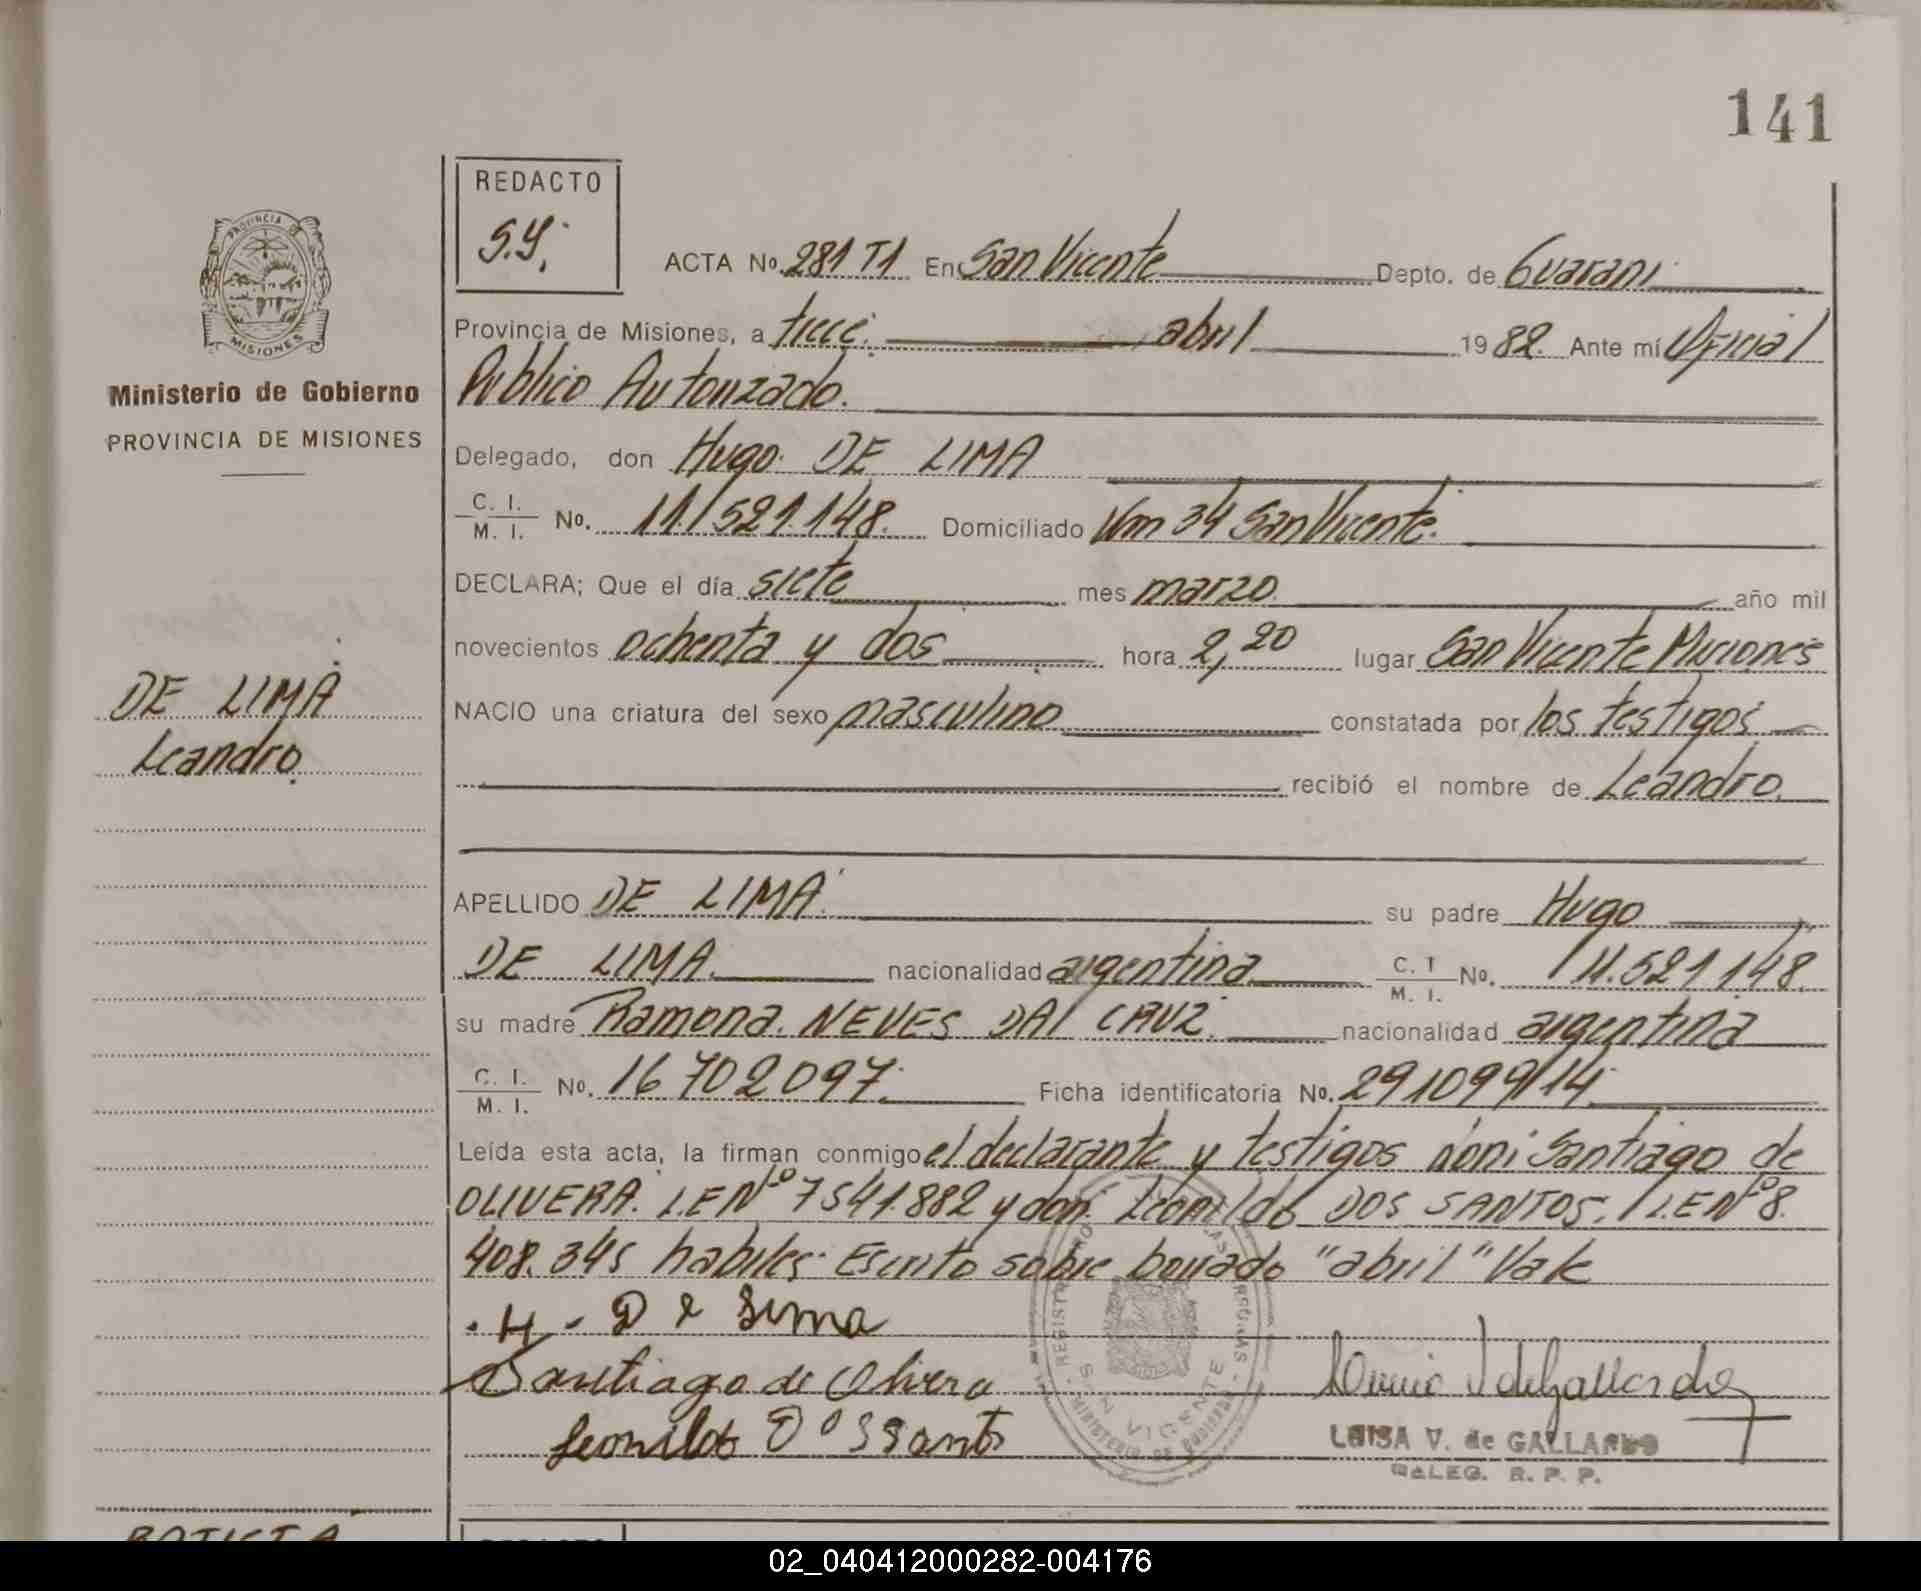 141
REDACTO
S.Y.
ACTA No. 281 T1 En San Vicente Depto. de Guarani
Provincia de Misiones, a trece abril 1982. Ante mí Oficial
Publico Autorizado.
Delegado, don Hugo DE LIMA
C. I. M. I. No. 11.521.148. Domiciliado Km 34 San Vicente.
DECLARA; Que el día siete mes marzo año mil
novecientos ochenta y dos hora 2,20 lugar San Vicente Misiones
NACIO una criatura del sexo masculino constatada por los testigos
recibió el nombre de Leandro.
APELLIDO DE LIMA su padre Hugo
DE LIMA nacionalidad argentina C. I M. I. No. 11.521.148.
su madre Ramona NEVES DA CRUZ. nacionalidad argentina
C. I. M. I. No. 16702097. Ficha identificatoria No. 291099/14
Leída esta acta, la firman conmigo el declarante y testigos don Santiago de
OLIVERA. L.E Nº 7541.882 y don Leonildo DOS SANTOS. L.E Nº 8.
408.345 habiles. Escrito sobre borrado "abril" Vale
H. De Lima
Santiago de Olivera
Leonildo Dos Santos
LUISA V. de GALLARDO
DELEG. R. P. P.
PROVINCIA DE
MISIONES
Ministerio de Gobierno
PROVINCIA DE MISIONES
DE LIMA
Leandro.
SAN VICENTE
02_040412000282-004176